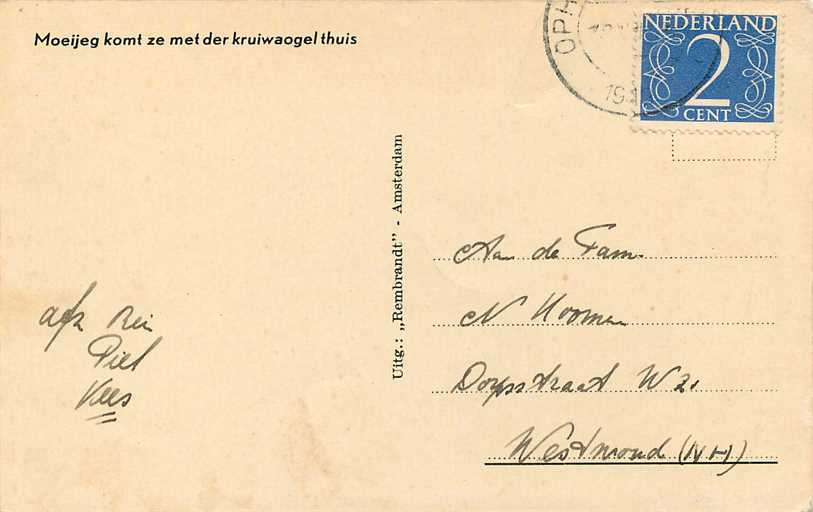 Moeijeg komt ze met der kruiwaogel thuis
OPH
19
NEDERLAND
2
CENT
Uitg.: „Rembrandt" - Amsterdam
Aan de Fam.
N Hoomen
Dorpsstraat W 21
Westwoud (NH)
afz Rein
Piet
Kees